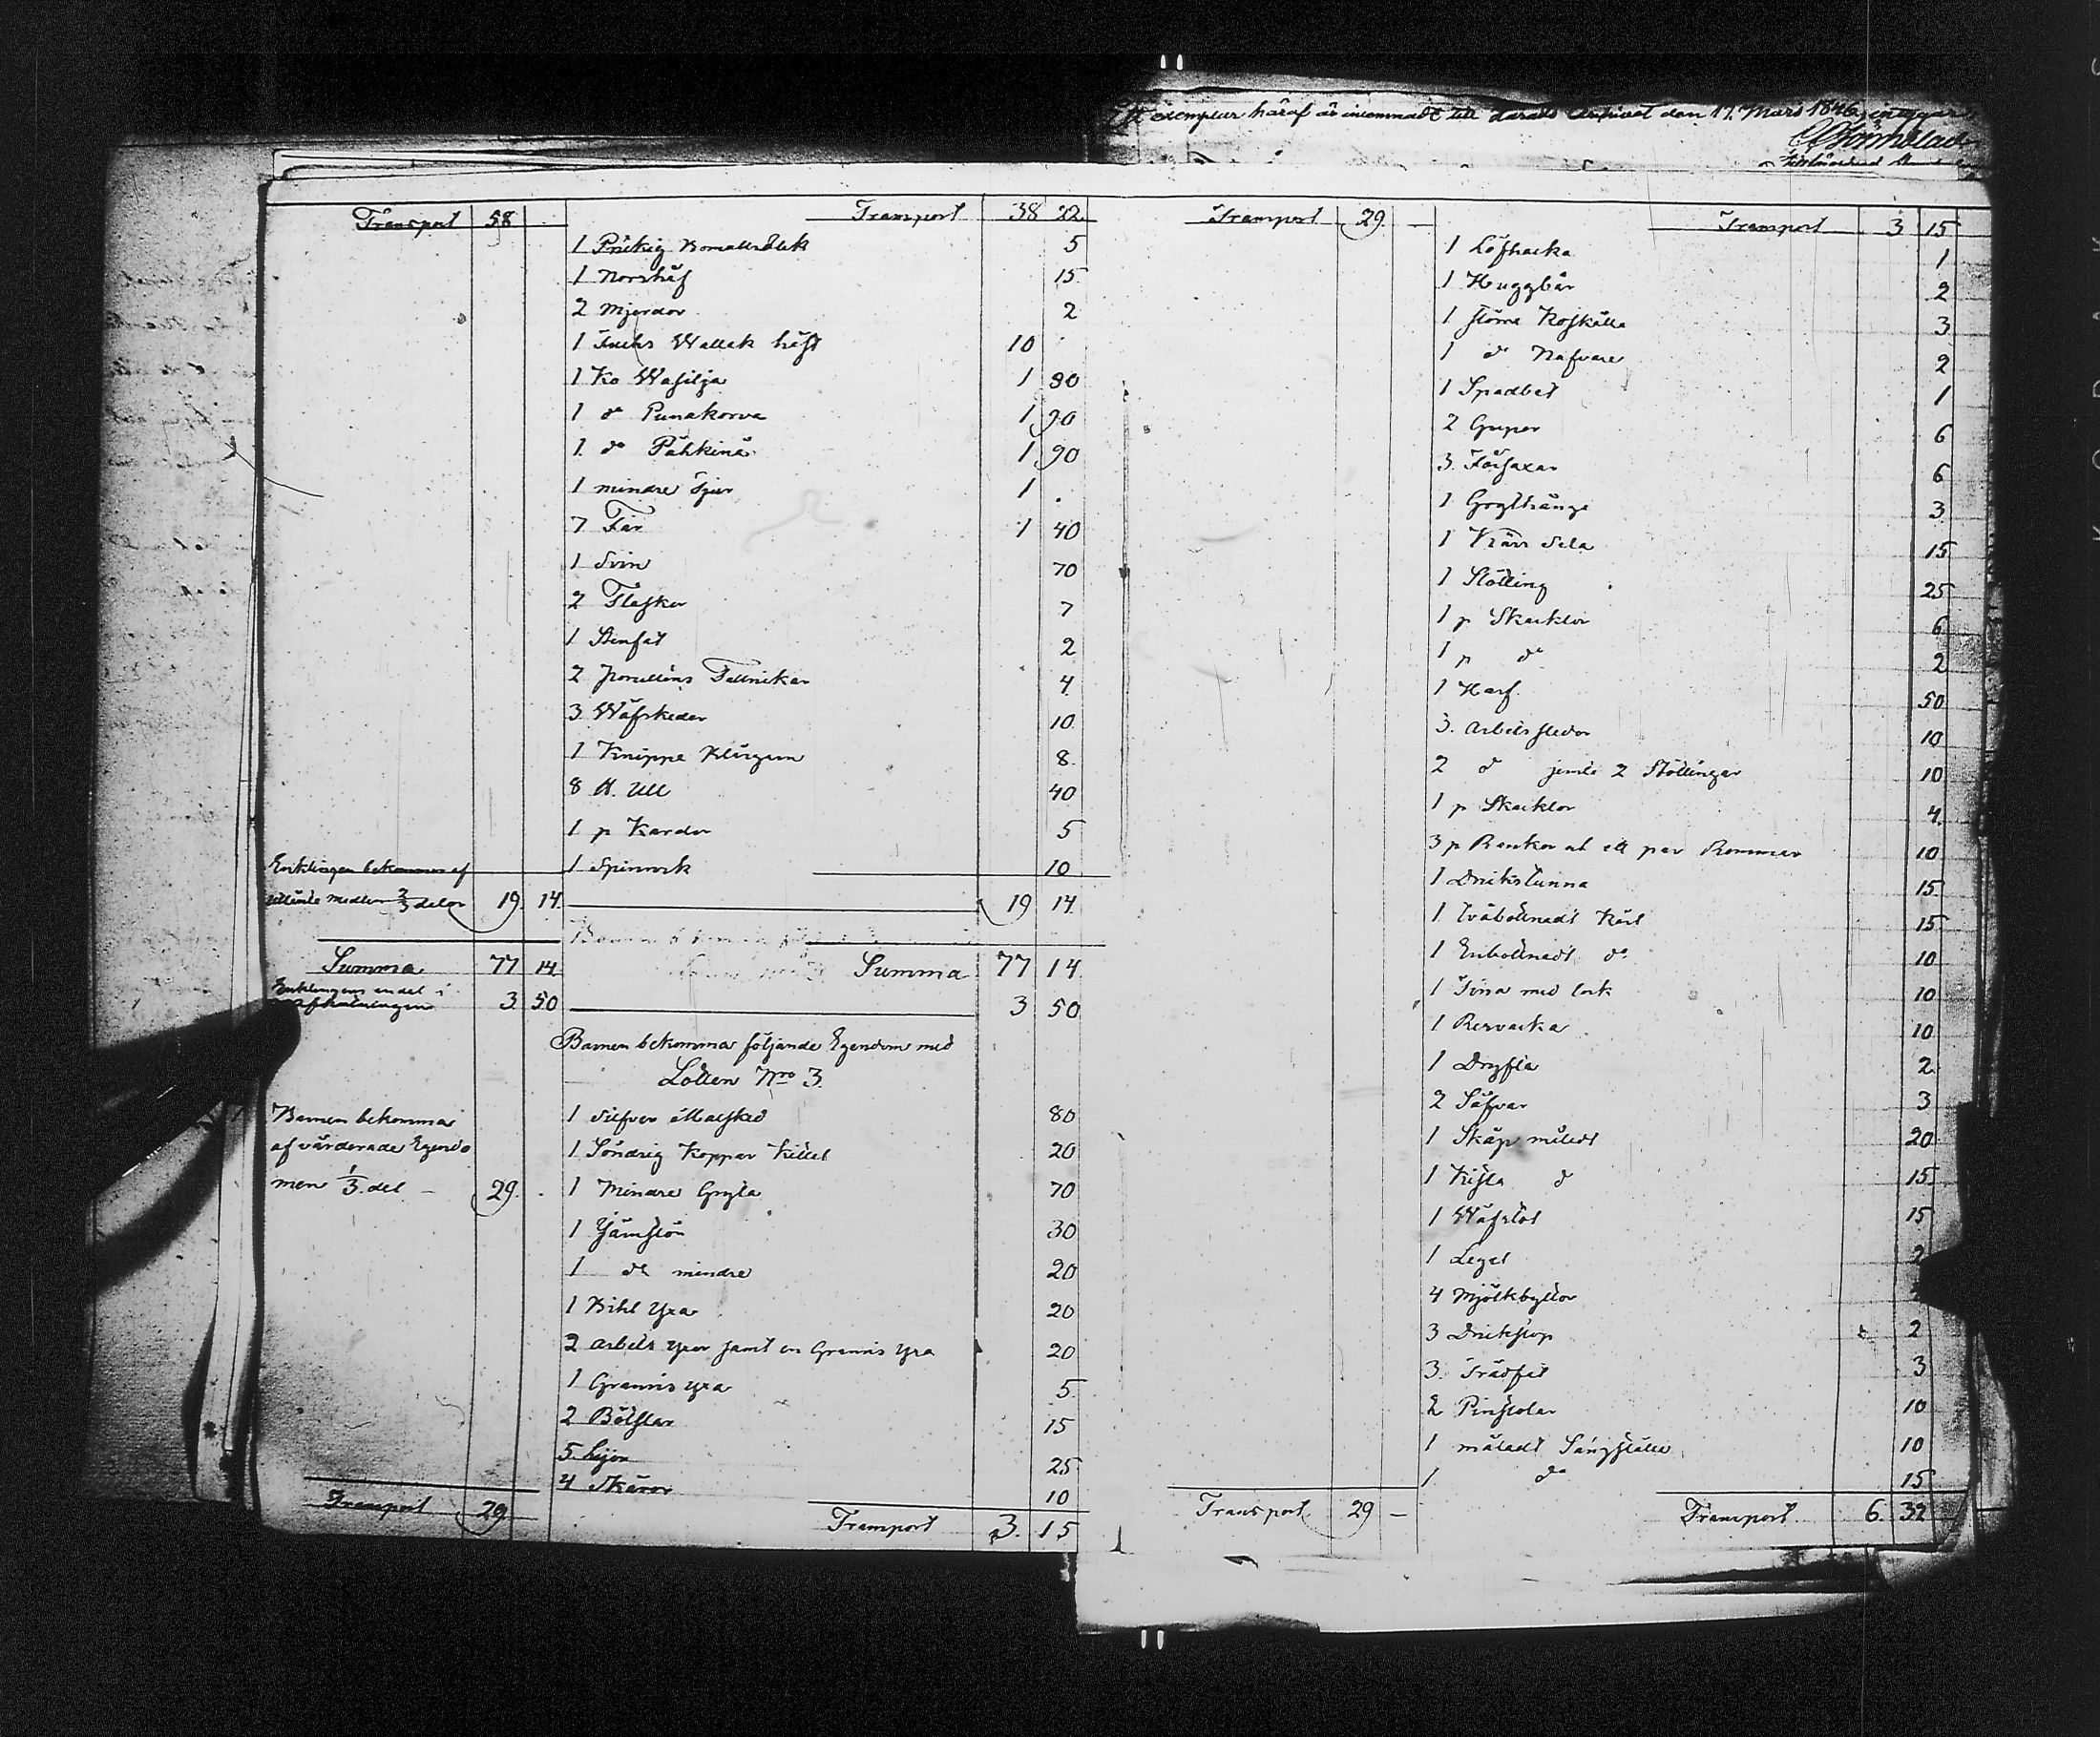 exemplar häraf är inlemnadt till Härads Arkivet den 17. Mars 1846, intygar
Transport 58 Transport 38 22.
1 Prickig 5
1 Norshåf 15
2 Mjerdar 2
1 Wallak häst 10
1 Ko Wasilja 1 90
1 do Punakorva 1 90
1 do Pähkinä 1 90
1 mindre Tjur 1
7 Får 1 40
1 Svin 70
2 Flaskor 7
1 Stenfat 2
2 porsellins Tallrikar 4
3 Wäfskedar 10
1 Knippe 8
8 ℔. Ull 40
1 p Kardor 5
1 Spinrock 10
Enklingen bekommer af
medlen 2/3 delar 19. 14. 19 14
Summa 77 14. Summa 77 14.
Enklingens andel i
3 50 3 50
Barnen bekomma följande Egendom med
Lotten Nro 3.
Barnen bekomma
af värderade Egendo
men 1/3 del - 29.
1 Silfver Matsked 80
1 Söndrig Koppar Kittel 20
1 Mindre Gryta 70
1 30
1 do mindre 20
1 Bihl Yxa 20
2 Arbets yxor samt en Grannis yxa 20
1 Grannis yxa 5
2 Bölstar 15
5 25
4 Skäror 10
Transport 29 Transport 3. 15
Transport 29. — Transport 3 15
1 Löfhacka 1
1 Huggbår 2
1 större Koskälla 3
1 do Nafvare 2
1 Spadbet 1
2 Grepar 6
3. Fårsaxar 6
1 3
1 Kärr Sela 15
1 Stötting 25
1 p Skacklor 6
1 p do 2
1 Harf. 50
3. Arbets slädor 10
2 do jemte 2 Stöttingar 10
1 p Skacklor 4.
3 p Bankor ett par 10
1 Drickstunna 15
1 tvåbottnadt Kärl 15
1 Enbottnadt do 10
1 Tina med lock 10
1 10
1 Dryfta 2
2 Såfvar 3
1 Skåp måladt 20
1 Kista do 15
1 Wäfstol 15
1 2
4 Mjölkbyttor
3 Drickstop 2
3. Trädfat 3
2 Pinstolar 10
1 måladt Sängställe 10
1 do 15
Transport 29 — Transport 6. 32